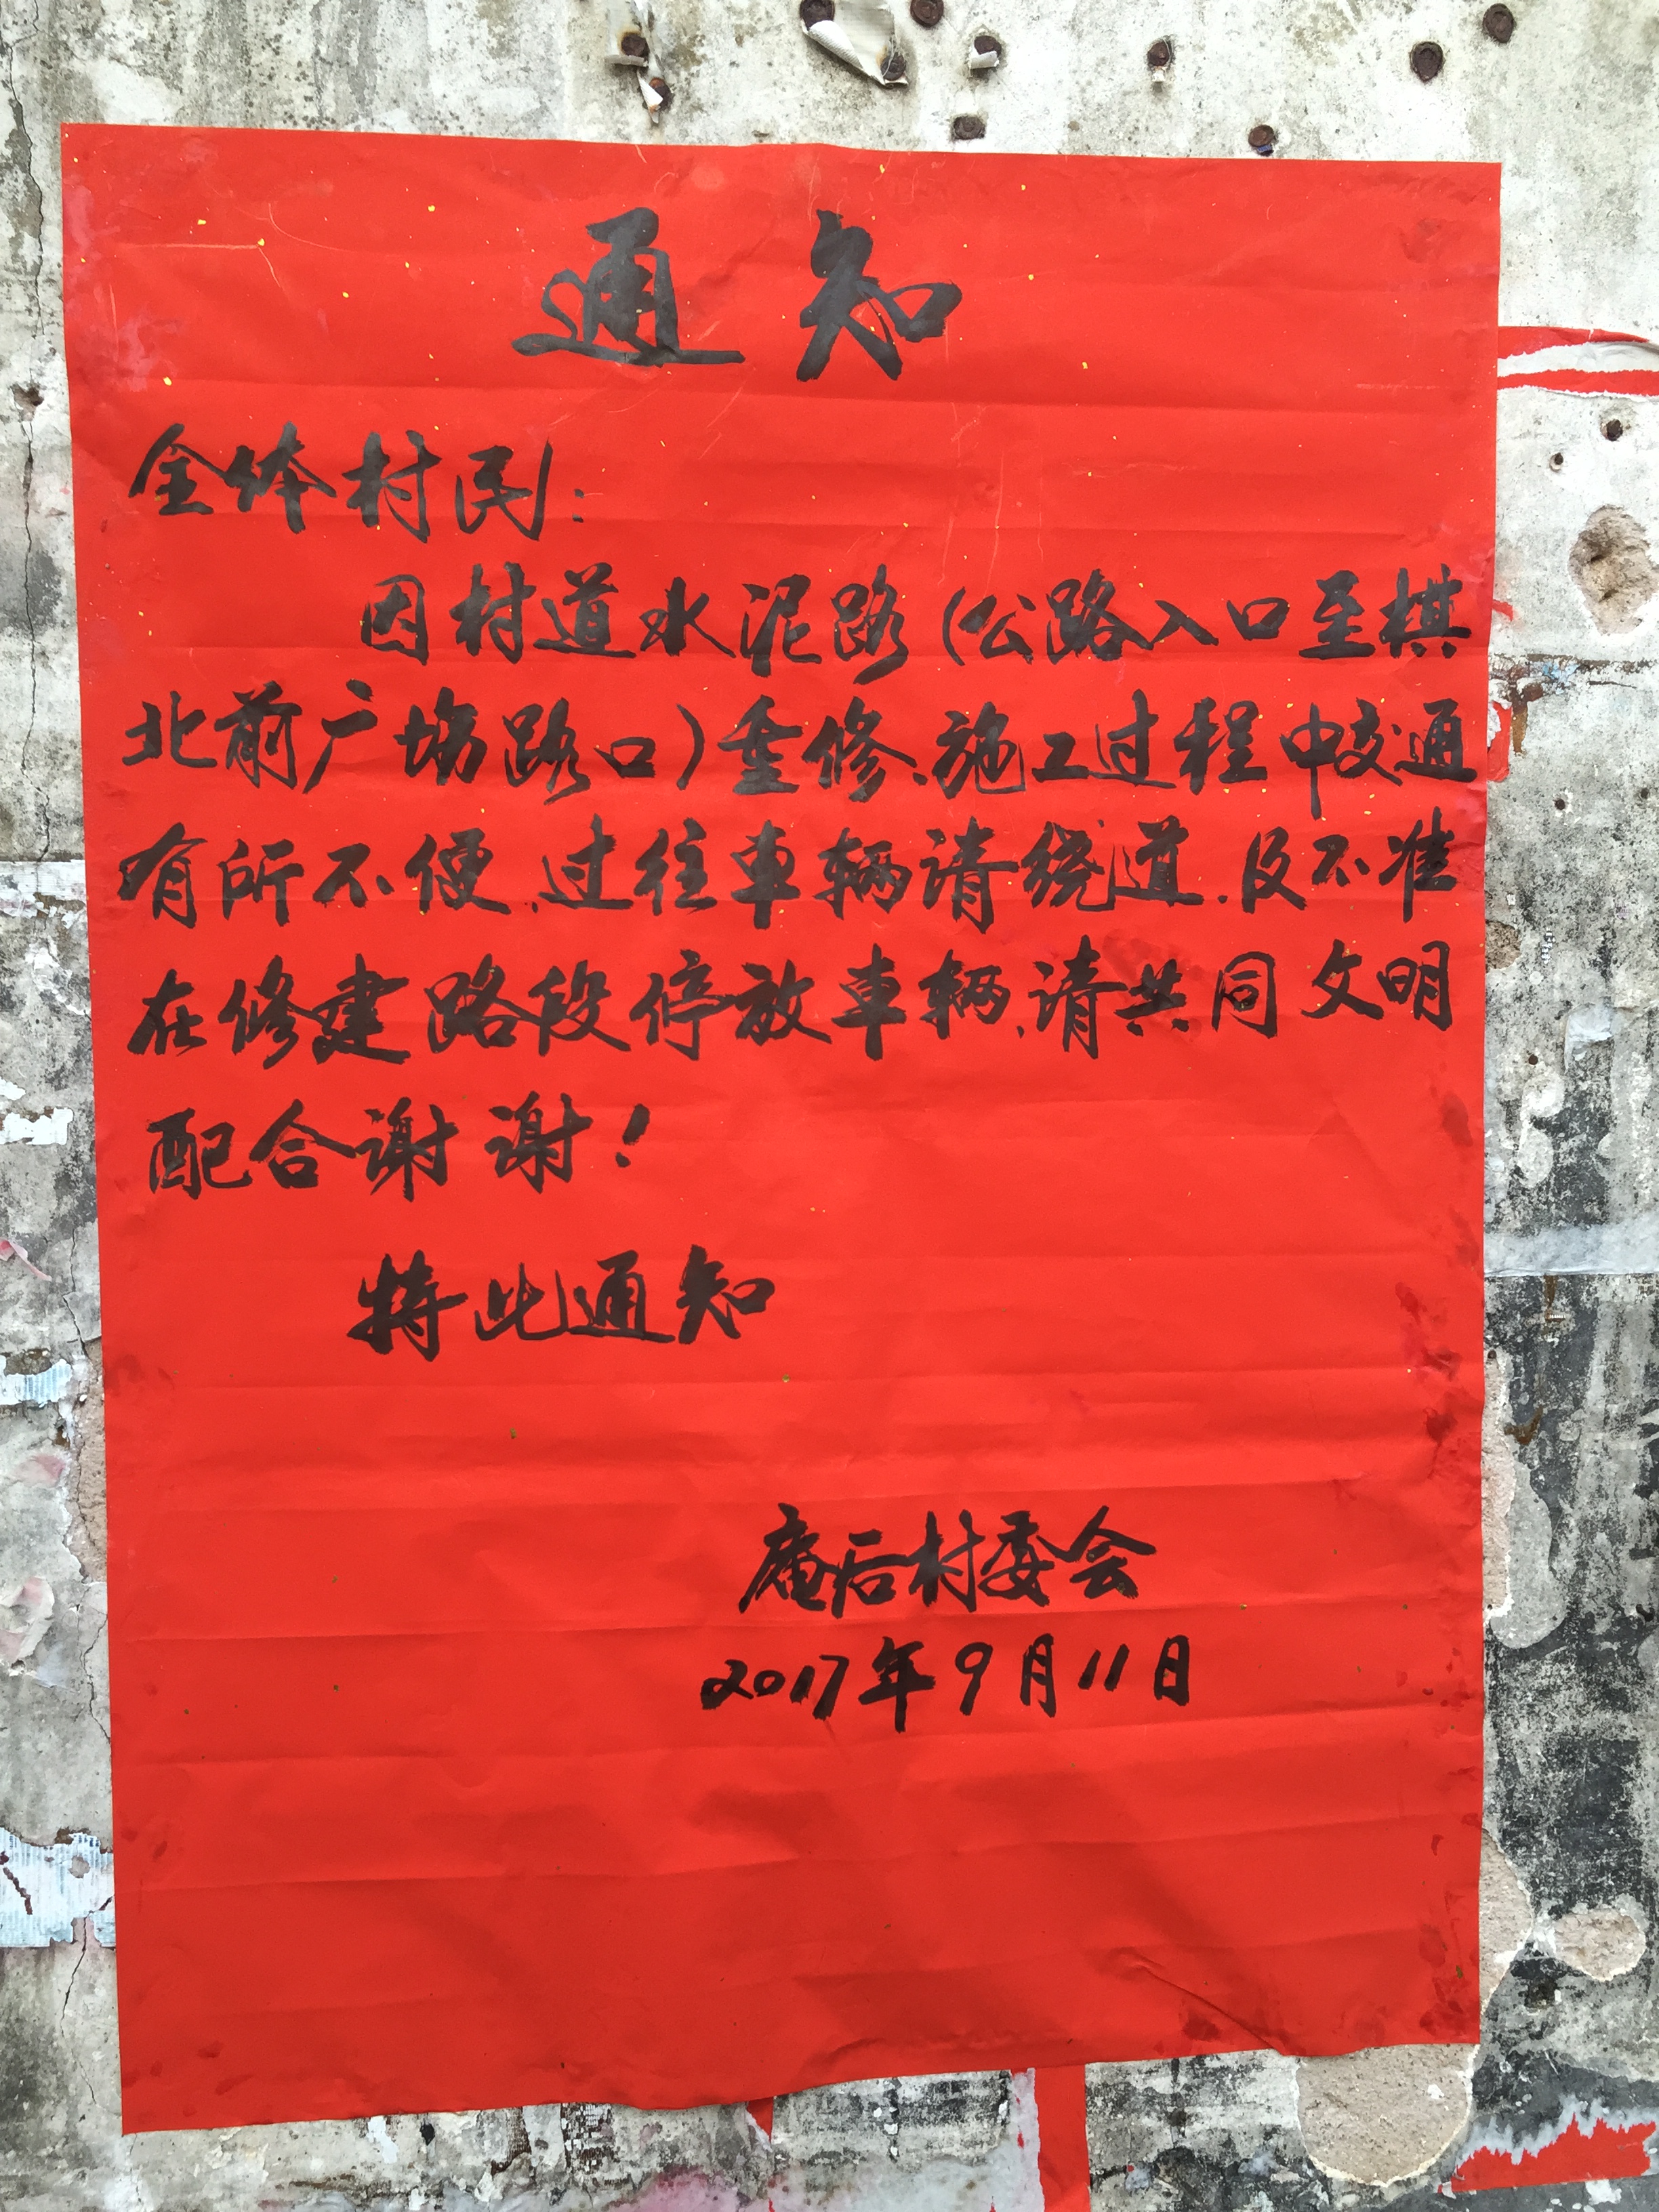 通知
全体村民：
因村道水泥路（公路入口至棋
北前广场路口）重修、施工过程中交通
有所不便、过往車辆请绕道、及不准
在修建路段停放車辆、请共同文明
配合谢谢！
特此通知
庵后村委会
2017年9月11日